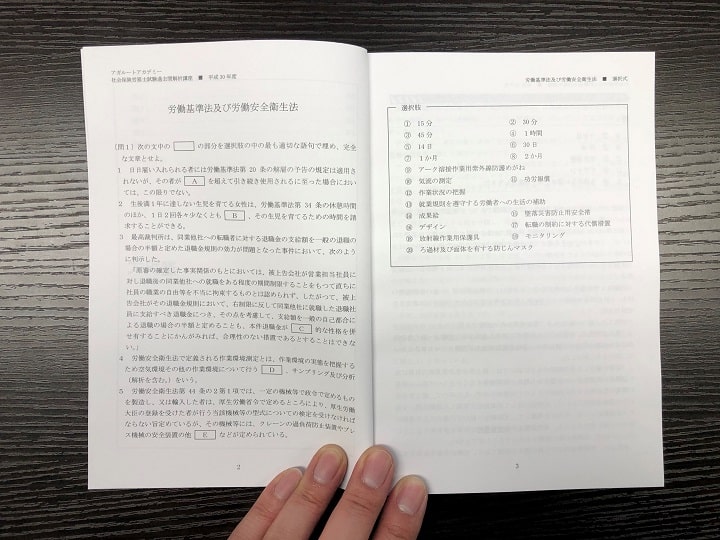 アガルートアカデミー
社会保険労務士試験過去問解析講座 ■ 平成30年度
労働基準法及び労働安全衛生法
〔問1〕次の文中の の部分を選択肢の中の最も適切な語句で埋め、完全
な文章とせよ。
1 日日雇い入れられる者には労働基準法第 20 条の解雇の予告の規定は適用さ
れないが、その者が A を超えて引き続き使用されるに至った場合におい
ては、この限りでない。
2 生後満1年に達しない生児を育てる女性は、労働基準法第 34 条の休憩時間
のほか、1日2回各々少なくとも B 、その生児を育てるための時間を請
求することができる。
3 最高裁判所は、同業他社への転職者に対する退職金の支給額を一般の退職の
場合の半額と定めた退職金規則の効力が問題となった事件において、次のよう
に判示した。
「原審の確定した事実関係のもとにおいては、被上告会社が営業担当社員に
対し退職後の同業他社への就職をある程度の期間制限することをもって直ちに
社員の職業の自由等を不当に拘束するものとは認められず、したがって、被上
告会社がその退職金規則において、右制限に反して同業他社に就職した退職社
員に支給すべき退職金につき、その点を考慮して、支給額を一般の自己都合に
よる退職の場合の半額と定めることも、本件退職金が C 的な性格を併
せ有することにかんがみれば、合理性のない措置であるとすることはできな
い。」
4 労働安全衛生法で定義される作業環境測定とは、作業環境の実態を把握する
ため空気環境その他の作業環境について行う D 、サンプリング及び分析
（解析を含む。）をいう。
5 労働安全衛生法第 44 条の2第1項では、一定の機械等で政令で定めるもの
を製造し、又は輸入した者は、厚生労働省令で定めるところにより、厚生労働
大臣の登録を受けた者が行う当該機械等の型式についての検定を受けなければ
ならない旨定めているが、その機械等には、クレーンの過負荷防止装置やプレ
ス機械の安全装置の他 E などが定められている。
2
労働基準法及び労働安全衛生法 ■ 選択式
選択肢
① 15分 ② 30分
③ 45分 ④ 1時間
⑤ 14日 ⑥ 30日
⑦ 1か月 ⑧ 2か月
⑨ アーク溶接作業用紫外線防護めがね
⑩ 気流の測定 ⑪ 功労報償
⑫ 作業状況の把握
⑬ 就業規則を遵守する労働者への生活の補助
⑭ 成果給 ⑮ 墜落災害防止用安全帯
⑯ デザイン ⑰ 転職の制約に対する代償措置
⑱ 放射線作業用保護具 ⑲ モニタリング
⑳ ろ過材及び面体を有する防じんマスク
3